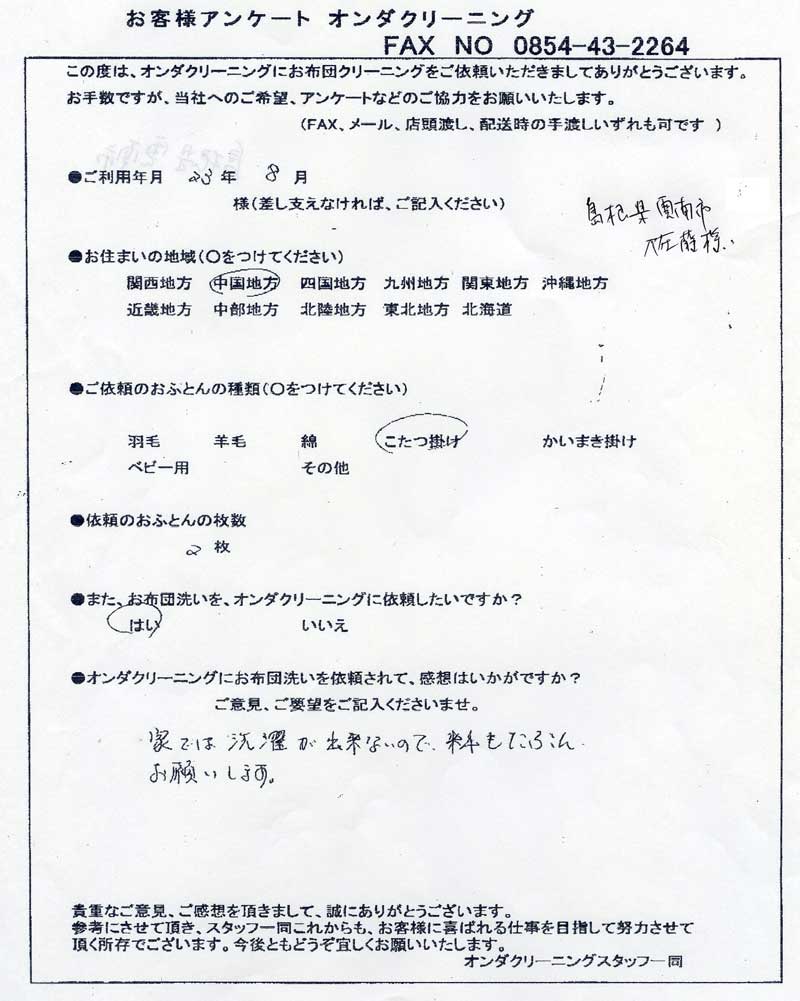 お客様アンケート オンダクリーニング
FAX NO 0854-43-2264
この度は、オンダクリーニングにお布団クリーニングをご依頼いただきましてありがとうございます。
お手数ですが、当社へのご希望、アンケートなどのご協力をお願いいたします。
(FAX、メール、店頭渡し、配送時の手渡しいずれも可です )
●ご利用年月 23年 8月
様(差し支えなければ、ご記入ください)
島根県雲南市
佐藤様
●お住まいの地域(〇をつけてください)
関西地方 中国地方 四国地方 九州地方 関東地方 沖縄地方
近畿地方 中部地方 北陸地方 東北地方 北海道
●ご依頼のおふとんの種類(〇をつけてください)
羽毛 羊毛 綿 こたつ掛け かいまき掛け
ベビー用 その他
●依頼のおふとんの枚数
2枚
●また、お布団洗いを、オンダクリーニングに依頼したいですか?
はい いいえ
●オンダクリーニングにお布団洗いを依頼されて、感想はいかがですか?
ご意見、ご要望をご記入くださいませ。
家では洗濯が出来ないので、
お願いします。
貴重なご意見、ご感想を頂きまして、誠にありがとうございます。
参考にさせて頂き、スタッフ一同これからも、お客様に喜ばれる仕事を目指して努力させて
頂く所存でございます。今後ともどうぞ宜しくお願いいたします。
オンダクリーニングスタッフ一同